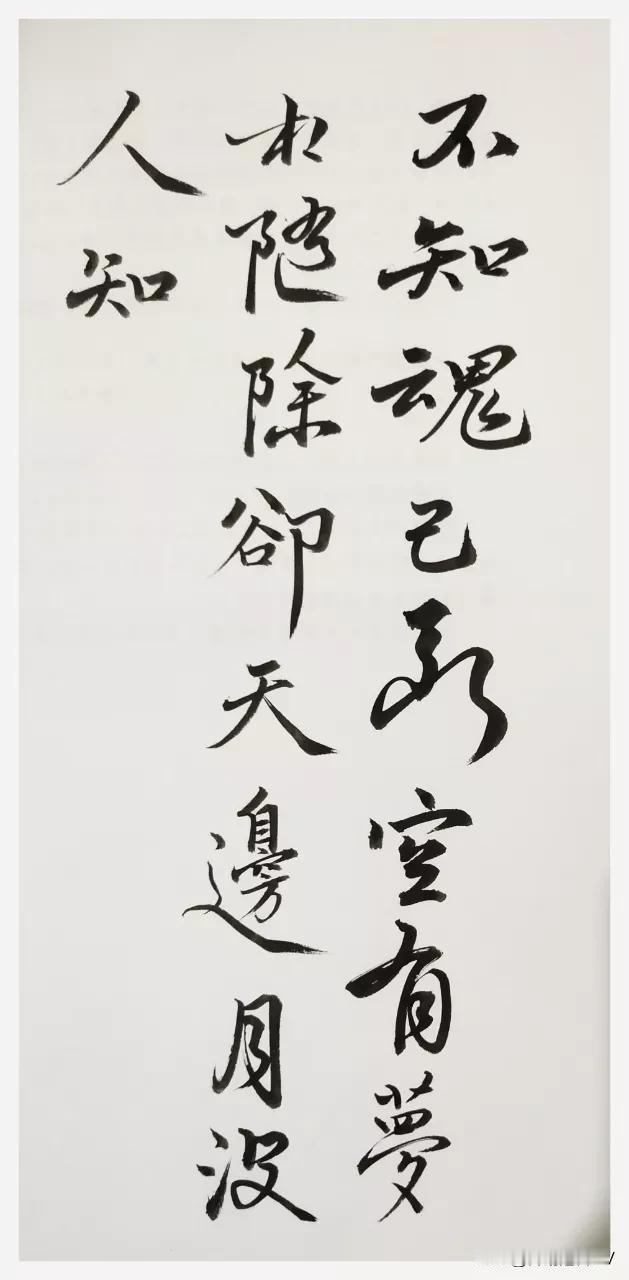 不知魂已断空有夢
相随除卻天邊月没
人知